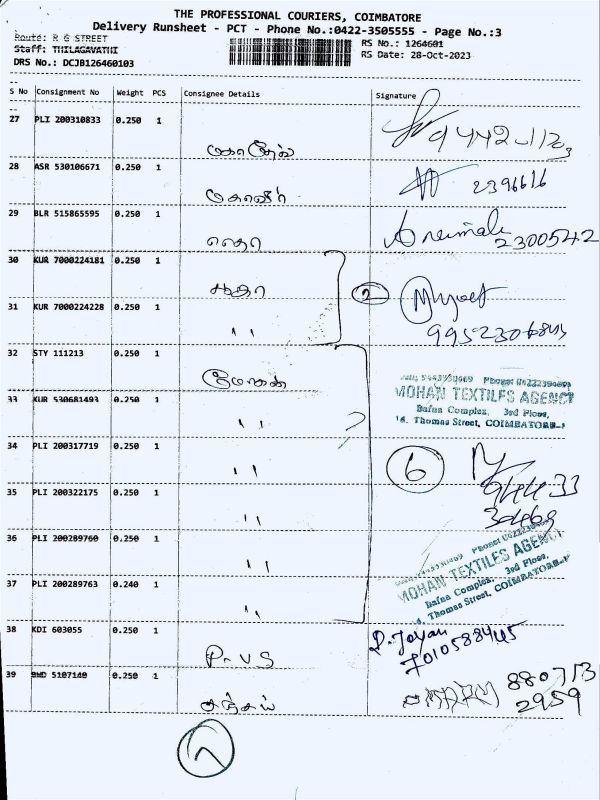 THE PROFESSIONAL COURIERS, COIMBATORE
Delivery Runsheet - PCT - Phone No.:0422-3505555 - Page No.:3
Route: R G STREET
RS No.: 1264601
Staff: THILAGAVATHI
RS Date: 28-Oct-2023
DRS No.: DCJB126460103
S No Consignment No Weight PCS Consignee Details Signature
27 PLI 200310833 0.250 1
28 ASR 530106671 0.250 1 2396616
29 BLR 515865595 0.250 1 2300542
30 KUR 7000224181 0.250 1 சுதா 2
31 KUR 7000224228 0.250 1 ''
32 STY 111213 0.250 1 மோகன்
MOHAN TEXTILES AGENCY
Bafna Complex, 3rd Floor,
Thomas Street, COIMBATORE-1
33 KUR 530681493 0.250 1 ''
34 PLI 200317719 0.250 1 '' 6 94433
35 PLI 200322175 0.250 1 '' 30469
36 PLI 200289760 0.250 1 ''
MOHAN TEXTILES AGENCY
Bafna Complex, 3rd Floor,
Thomas Street, COIMBATORE-1
37 PLI 200289763 0.240 1 ''
38 KDI 603055 0.250 1 P-VS
7010588445
39 BMD 5107140 0.250 1 சஞ்சய் 880713
2959
7